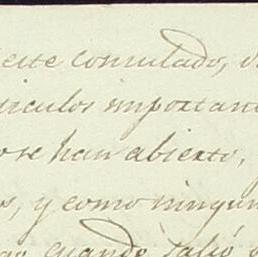 este consulado, d
iculos importan
se han abierto,
s, y como ningun
cuando salió